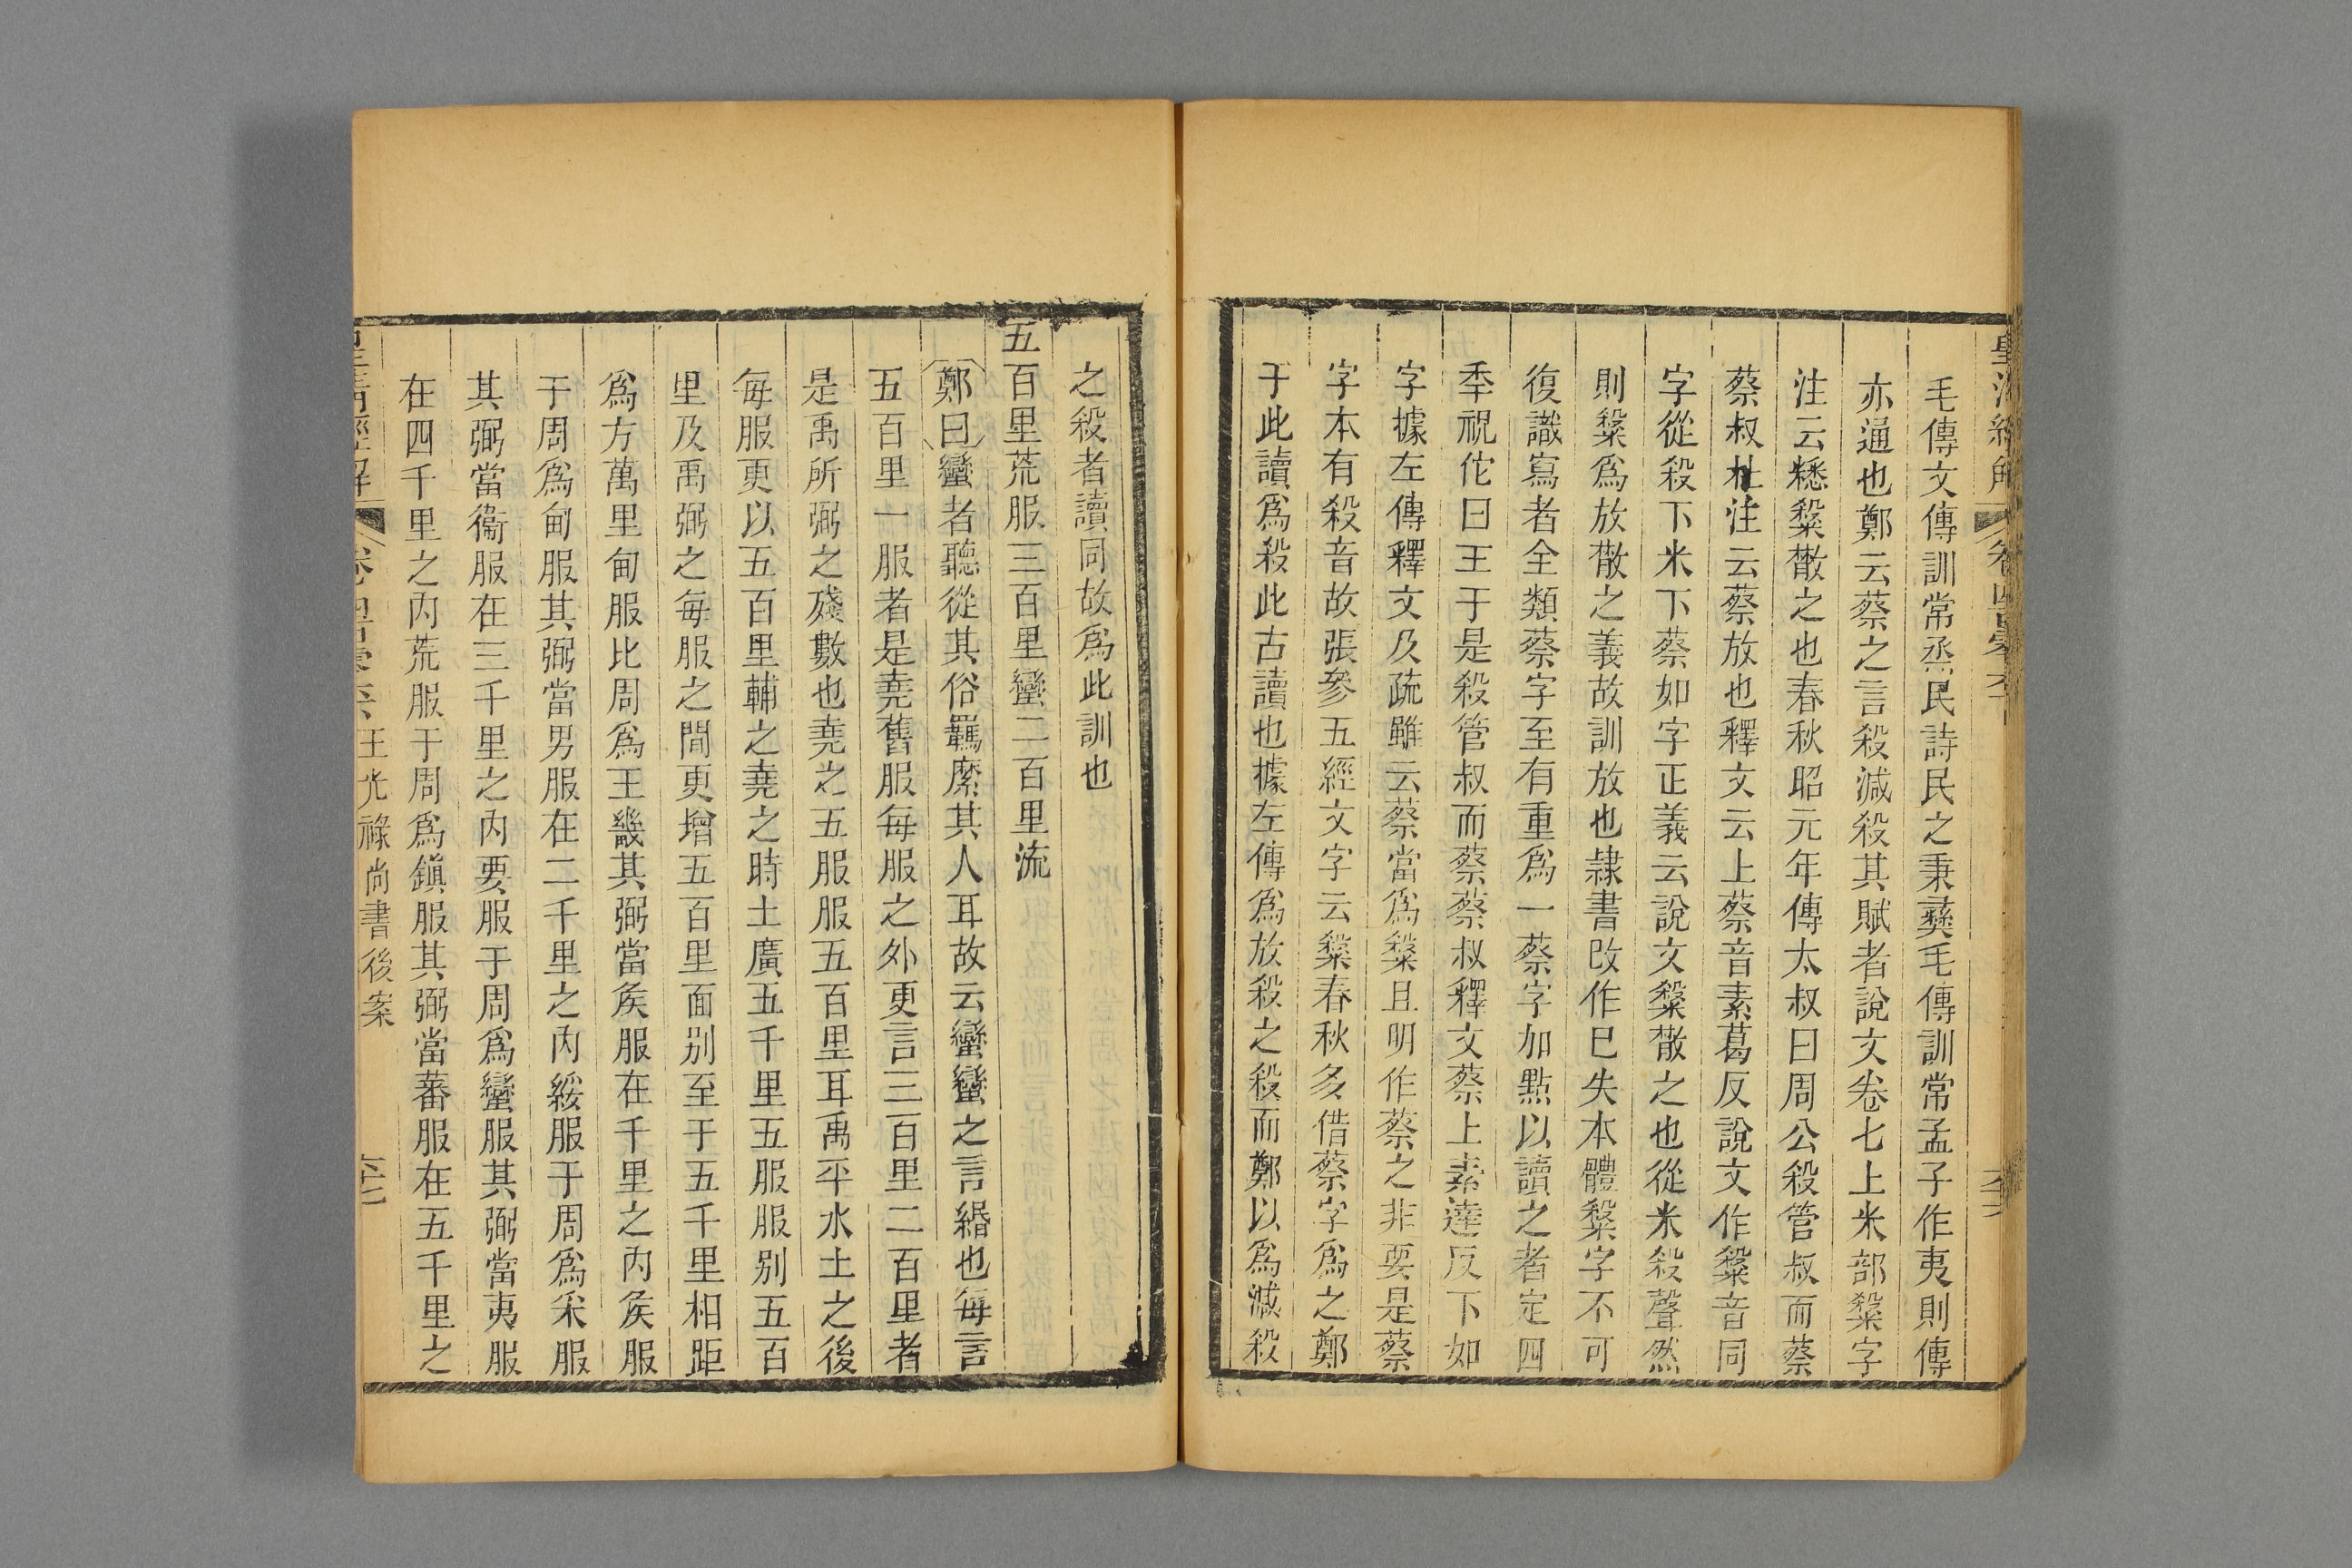 毛傳文傳訓常烝民詩民之秉彝毛傳訓常孟子作夷則傳
亦通也鄭云蔡之言殺減殺其賦者說文卷七上米部䊝字
注云䊝䊝㪚之也春秋昭元年傳太叔曰周公殺管叔而蔡
蔡叔杜注云蔡放也釋文云上蔡音素葛反說文作䊝音同
字從殺下米下蔡如字正義云說文䊝㪚之也從米殺聲然
則䊝爲放㪚之義故訓放也隷書改作已失本體䊝字不可
復識寫者全類蔡字至有重爲一蔡字加點以讀之者定四
秊祝佗曰王于是殺管叔而蔡蔡叔釋文蔡上素達反下如
字據左傳釋文及疏雖云蔡當爲䊝且明作蔡之非要是蔡
字本有殺音故張參五經文字云䊝春秋多借蔡字爲之鄭
于此讀爲殺此古讀也據左傳爲放殺之殺而鄭以爲減殺
之殺者讀同故爲此訓也
五百里荒服三百里蠻二百里流
鄭曰蠻者聽從其俗羈縻其人耳故云蠻蠻之言緡也每言
五百里一服者是堯舊服每服之外更言三百里二百里者
是禹所弼之殘數也堯之五服服五百里耳禹平水土之後
每服更以五百里輔之堯之時土廣五千里五服服别五百
里及禹弼之每服之間更增五百里面别至于五千里相距
爲方萬里甸服比周爲王畿其弼當矦服在千里之内矦服
于周爲甸服其弼當男服在二千里之内綏服于周爲采服
其弼當衞服在三千里之内要服于周爲蠻服其弼當夷服
在四千里之内荒服于周爲鎭服其弼當蕃服在五千里之
王光祿尚書後案